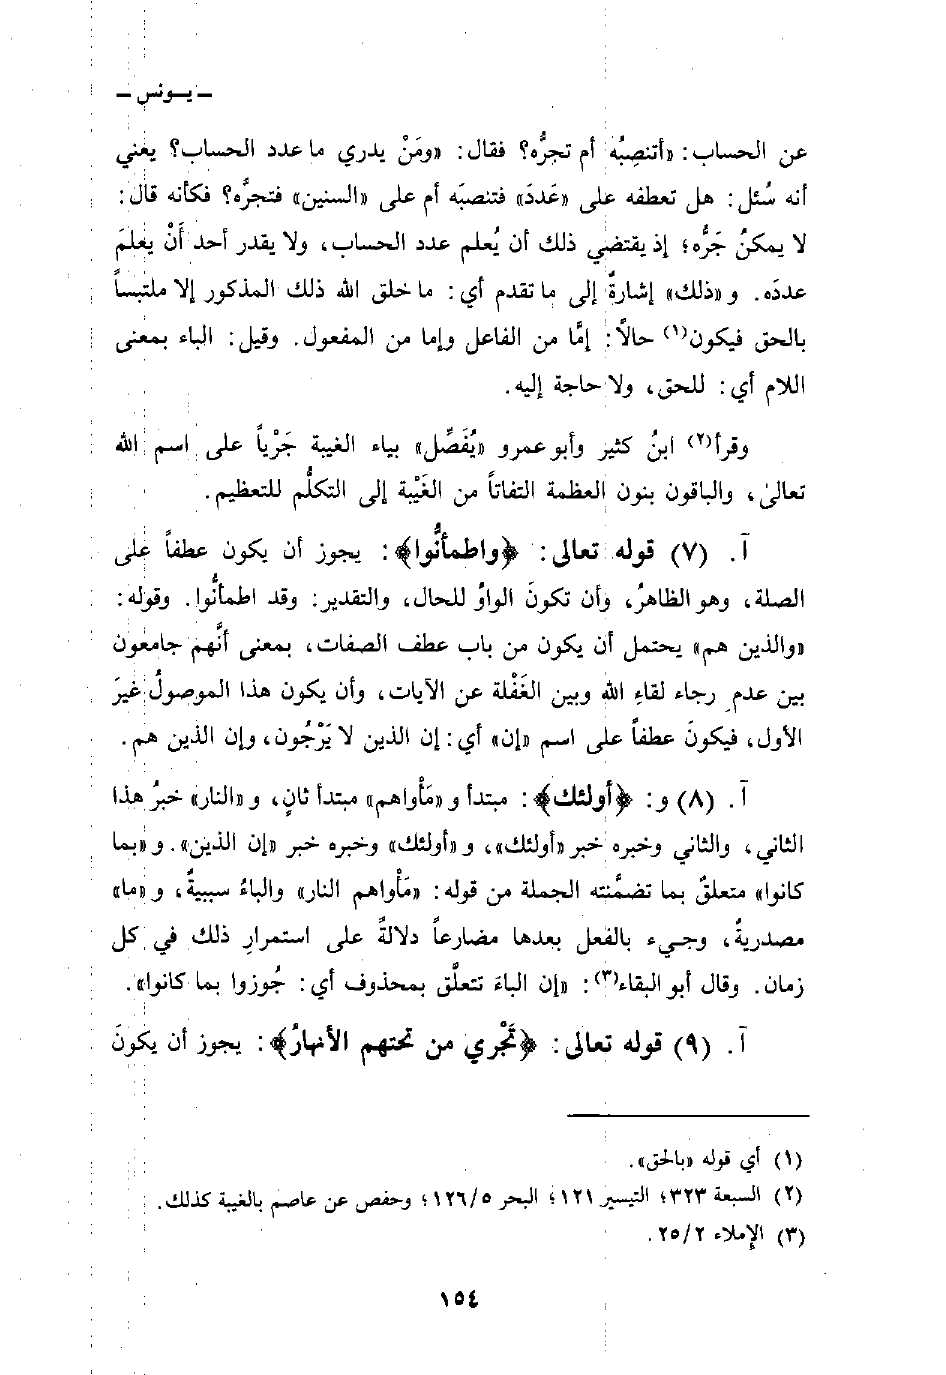 ـ يـونس ـ
عن الحساب: «أتنصِبُه أم تجرُّه؟ فقال: «ومَنْ يدري ما عدد الحساب؟ يعني
أنه سُئل: هل تعطفه على «عَدَدَ» فتنصبَه أم على «السنين» فتجرُّه؟ فكأنه قال:
لا يمكنُ جَرُّه؛ إذ يقتضي ذلك أن يُعلم عدد الحساب، ولا يقدر أحد أَنْ يعلمَ
عددَه. و «ذلك» إشارةٌ إلى ما تقدم أي: ما خلق الله ذلك المذكور إلا ملتبساً
بالحق فيكون(١) حالاً: إمَّا من الفاعل وإما من المفعول. وقيل: الباء بمعنى
اللام أي: للحق، ولا حاجة إليه.
وقرأ(٢) ابنُ كثير وأبو عمرو «يُفَصِّل» بياء الغيبة جَرْياً على اسم الله
تعالىٰ، والباقون بنون العظمة التفاتاً من الغَيْبة إلى التكلُّم للتعظيم.
آ. (٧) قوله تعالى: ﴿واطمأنُّوا﴾: يجوز أن يكون عطفاً على
الصلة، وهو الظاهرُ، وأن تكونَ الواوُ للحال، والتقدير: وقد اطمأنُّوا. وقوله:
«والذين هم» يحتمل أن يكون من باب عطف الصفات، بمعنى أنَّهم جامعون
بين عدم رجاء لقاءِ الله وبين الغَفْلة عن الآيات، وأن يكون هذا الموصولُ غيرَ
الأول، فيكونَ عطفاً على اسم «إن» أي: إن الذين لا يَرْجُون، وإن الذين هم.
آ. (٨) و: ﴿أولئك﴾: مبتدأ و «مَأْواهم» مبتدأ ثانٍ، و «النار» خبرُ هذا
الثاني، والثاني وخبره خبر «أولئك»، و «أولئك» وخبره خبر «إن الذين». و «بما
كانوا» متعلقٌ بما تضمَّنته الجملة من قوله: «مَأْواهم النار» والباءُ سببيةٌ، و «ما»
مصدريةٌ، وجيء بالفعل بعدها مضارعاً دلالةً على استمرارِ ذلك في كل
زمان. وقال أبو البقاء(٣): «إن الباءَ تتعلَّق بمحذوف أي: جُوزوا بما كانوا».
آ. (٩) قوله تعالى: ﴿تَجْري من تحتهم الأنهارُ﴾: يجوز أن يكونَ
(١) أي قوله «بالحق».
(٢) السبعة ٣٢٣؛ التيسير ١٢١؛ البحر ١٢٦/٥؛ وحفص عن عاصم بالغيبة كذلك.
(٣) الإملاء ٢٥/٢.
١٥٤